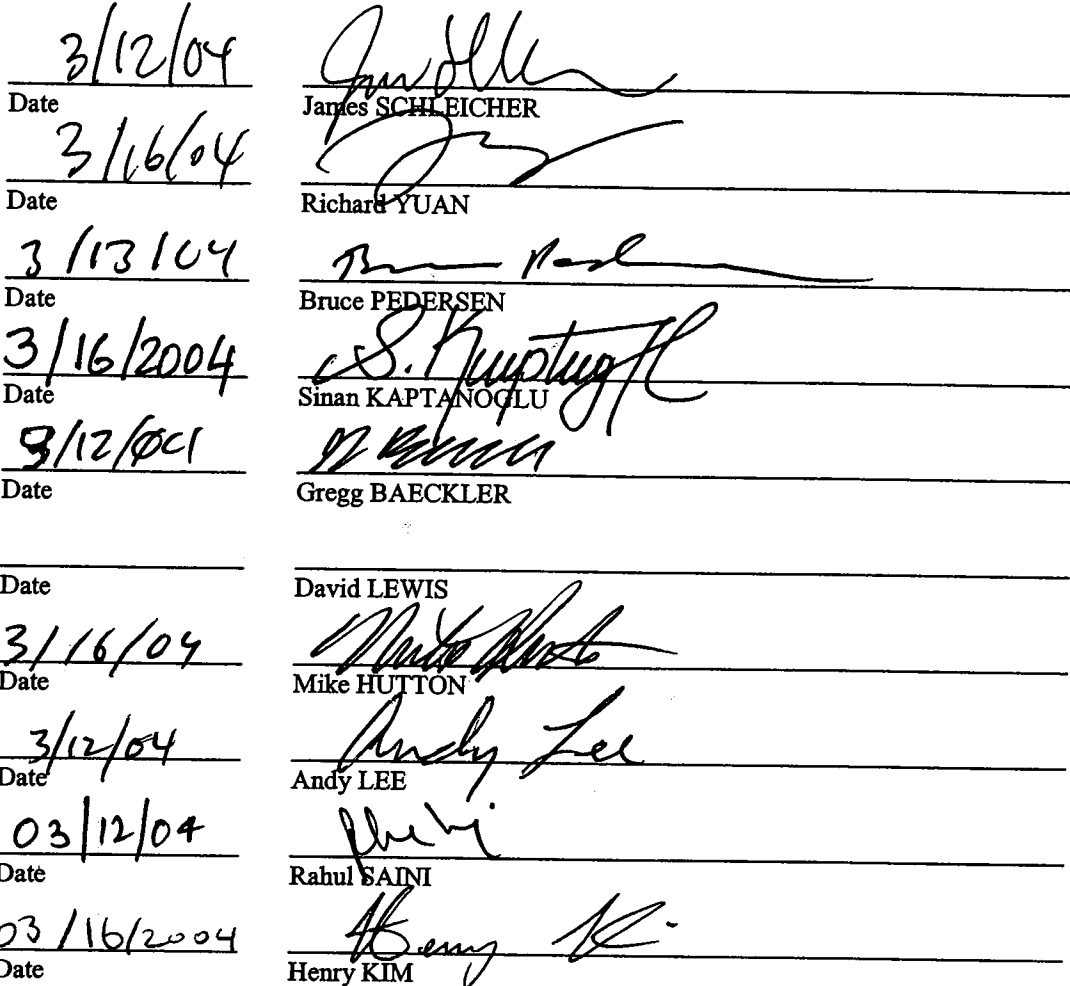 3/12/04
Date James SCHLEICHER
3/16/04
Date Richard YUAN
3/13/04
Date Bruce PEDERSEN
3/16/2004 S. Kaptanoglu
Date Sinan KAPTANOGLU
3/12/04
Date Gregg BAECKLER
Date David LEWIS
3/16/04 Mike Hutton
Date Mike HUTTON
3/12/04 Andy Lee
Date Andy LEE
03/12/04
Date Rahul SAINI
03/16/2004 Henry Ki
Date Henry KIM